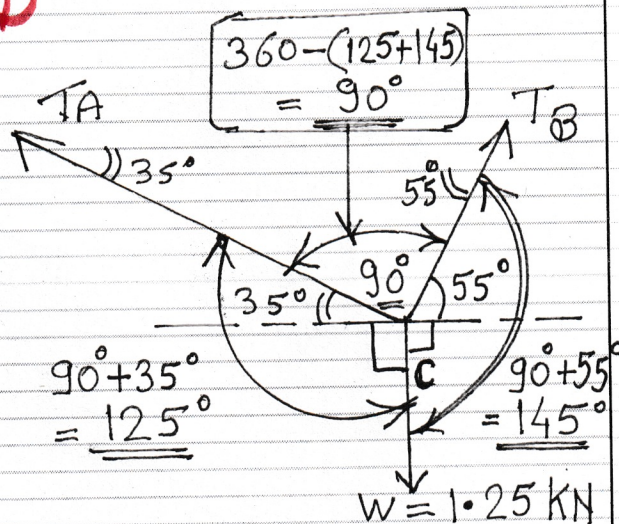 360-(125+145)
= 90°
TA
TB
35°
55°
35°
90°
55°
C
90°+35°
= 125°
90°+55°
= 145°
W = 1.25 KN